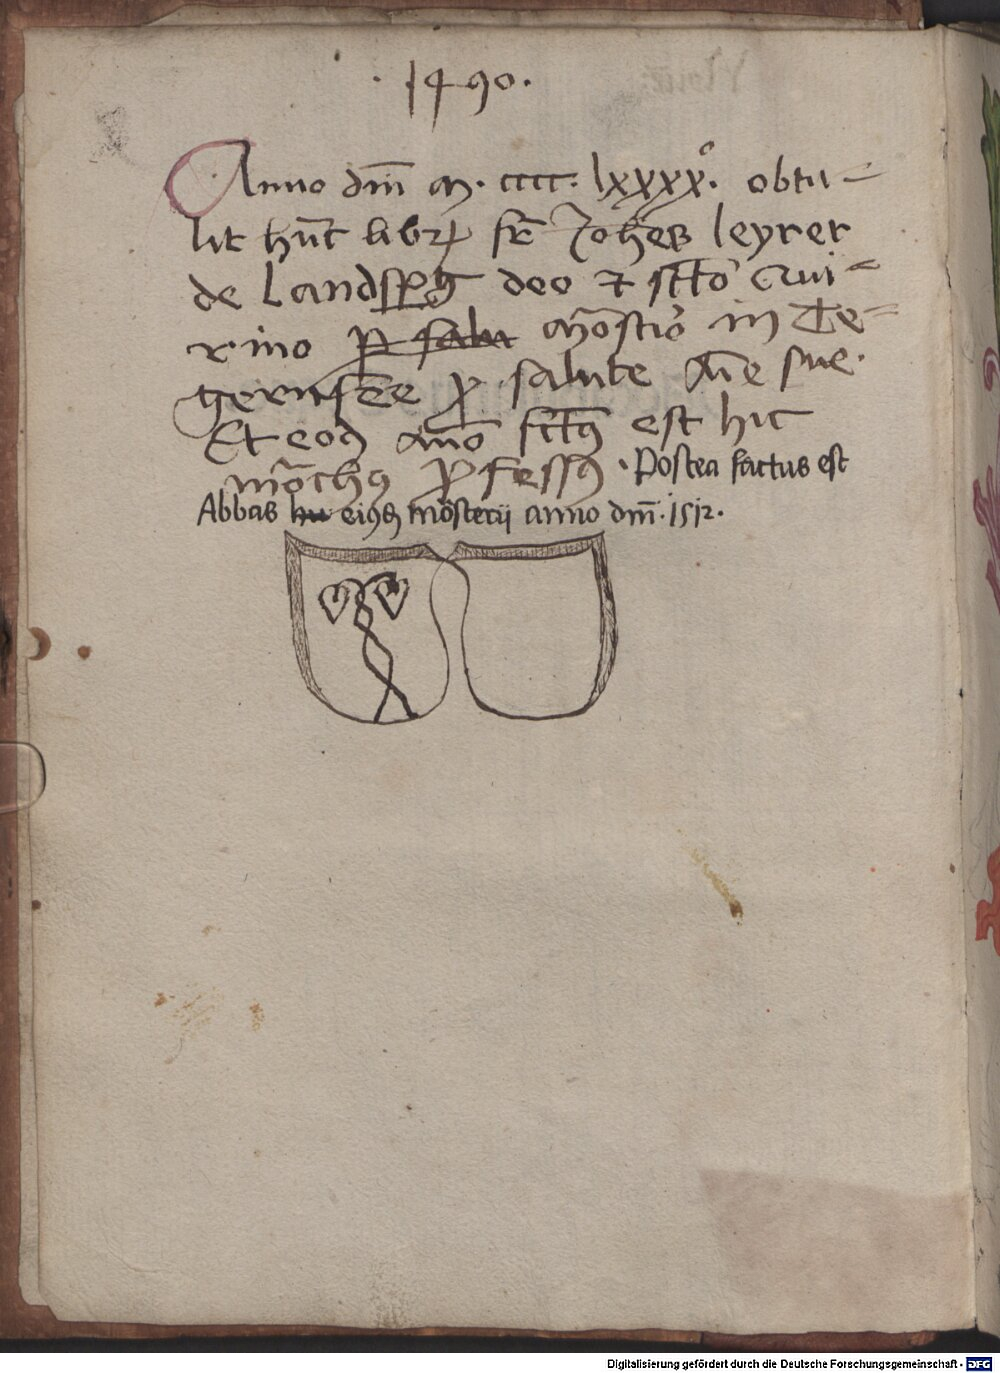 · 1490 ·
Anno dm̄ m · cccc · lxxxxº · obtu=
lit hūc libꝝ fr̄ Joh̄es leyrer
de Landsꝑg deo ⁊ sctō Qui=
rino p salu mōstio in Te=
gernseēe ꝓ salute aīe sue ·
Et eodē año fctꝰ est hic
mōchꝰ ꝓfessꝰ · Postea factus est
Abbas hu eiꝰdē mōsterij anno dm̄ · 1512 ·
Digitalisierung gefördert durch die Deutsche Forschungsgemeinschaft - DFG